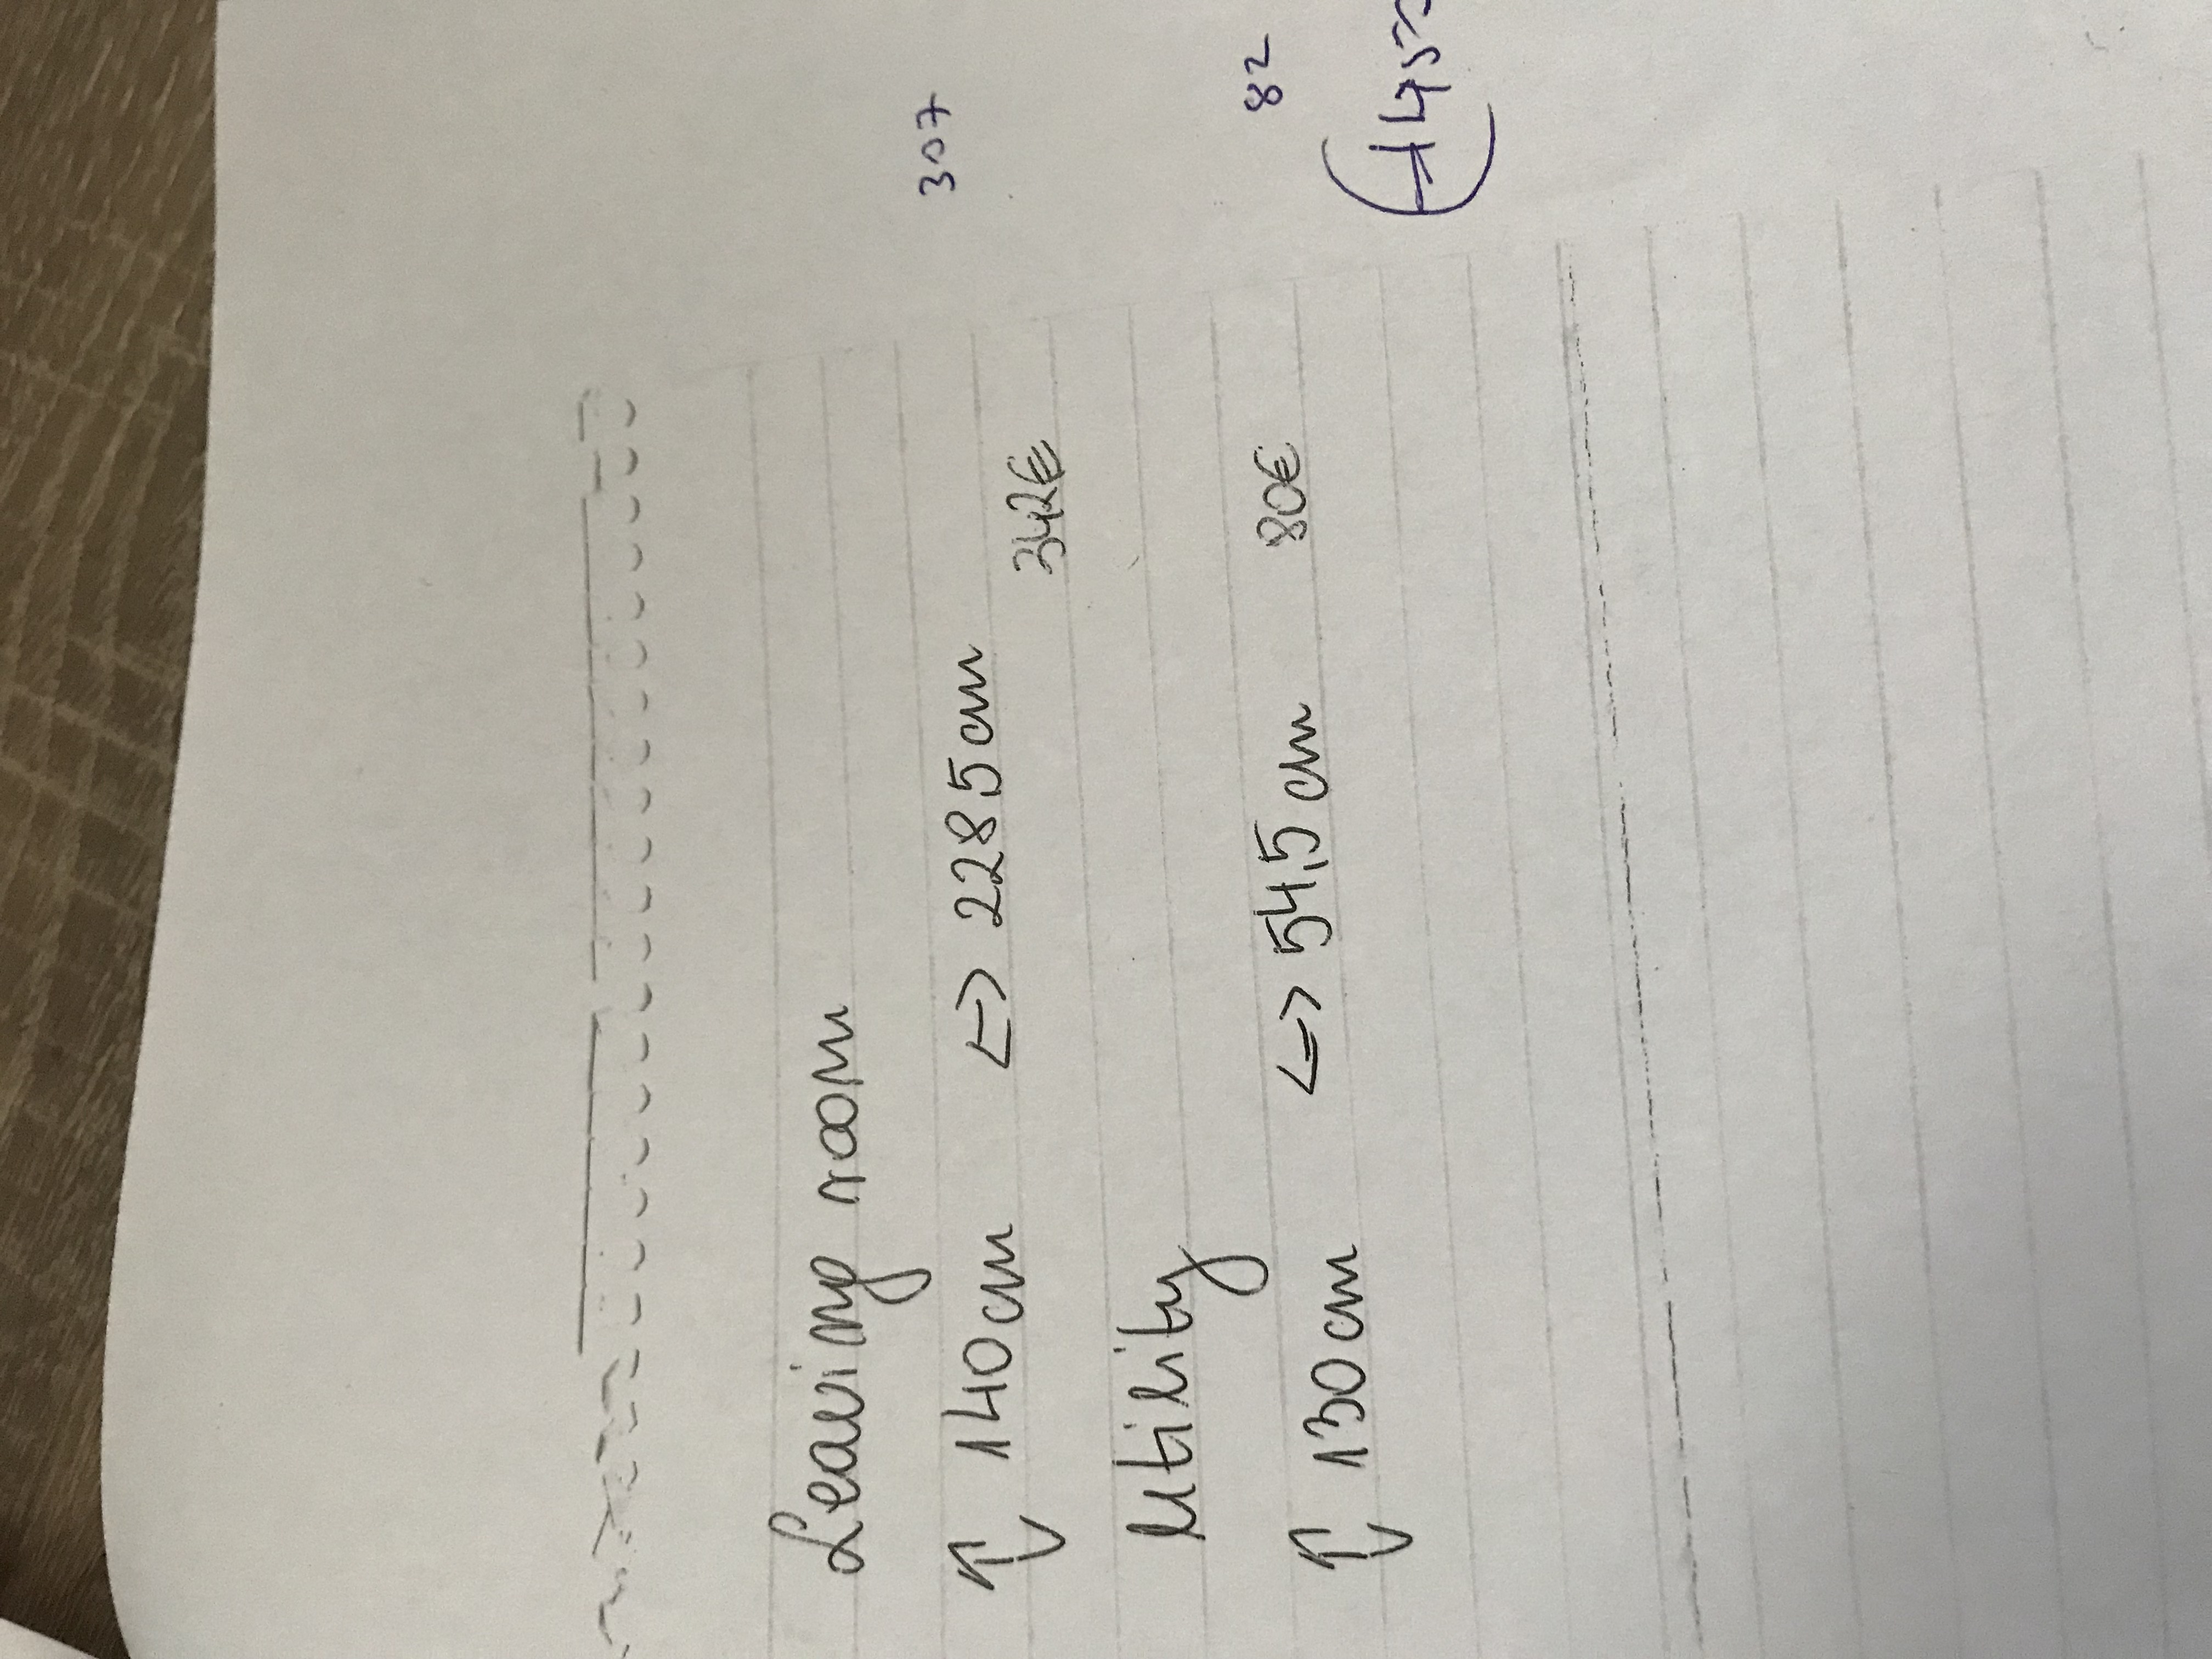 Leaving room
↕ 140cm <=> 228,5cm 307
342€
Utility
↕ 130cm <=> 54,5cm 80€ 82